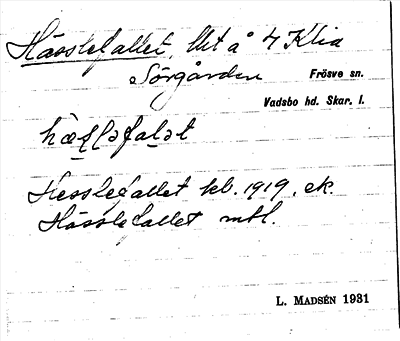 Hässlefallet, llet å 4 Klia
Sörgården Frösve sn.
Vadsbo hd. Skar. l.
Hesslefallet kb. 1919. ek.
Hässlefallet mtl.
L. MADSÉN 1931